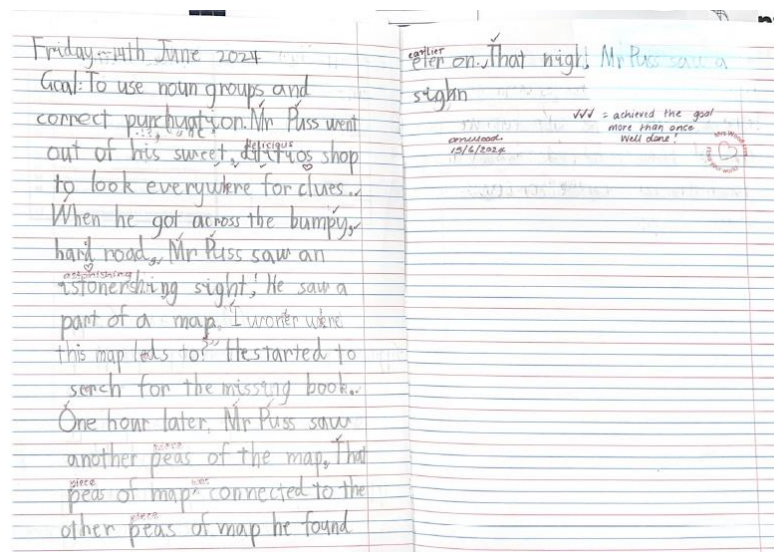 Friday 14th June 2024
Goal: To use noun groups and
correct punchuation. Mr Puss went
out of his sweet, delitrios shop
delicious
to look everywhere for clues.
When he got across the bumpy,
hard road, Mr Puss saw an
astonishing
istonershing sight! He saw a
part of a map. "I wonter were
this map leds to?" He started to
serch for the missing book.
One hour later, Mr Puss saw
piece
another peas of the map. That
piece was
peas of map connected to the
piece
other peas of map he found
earlier
eler on. That night Mr Puss saw a
sighn
✓✓✓ = achieved the goal
more than once
Well done!
15/6/2024